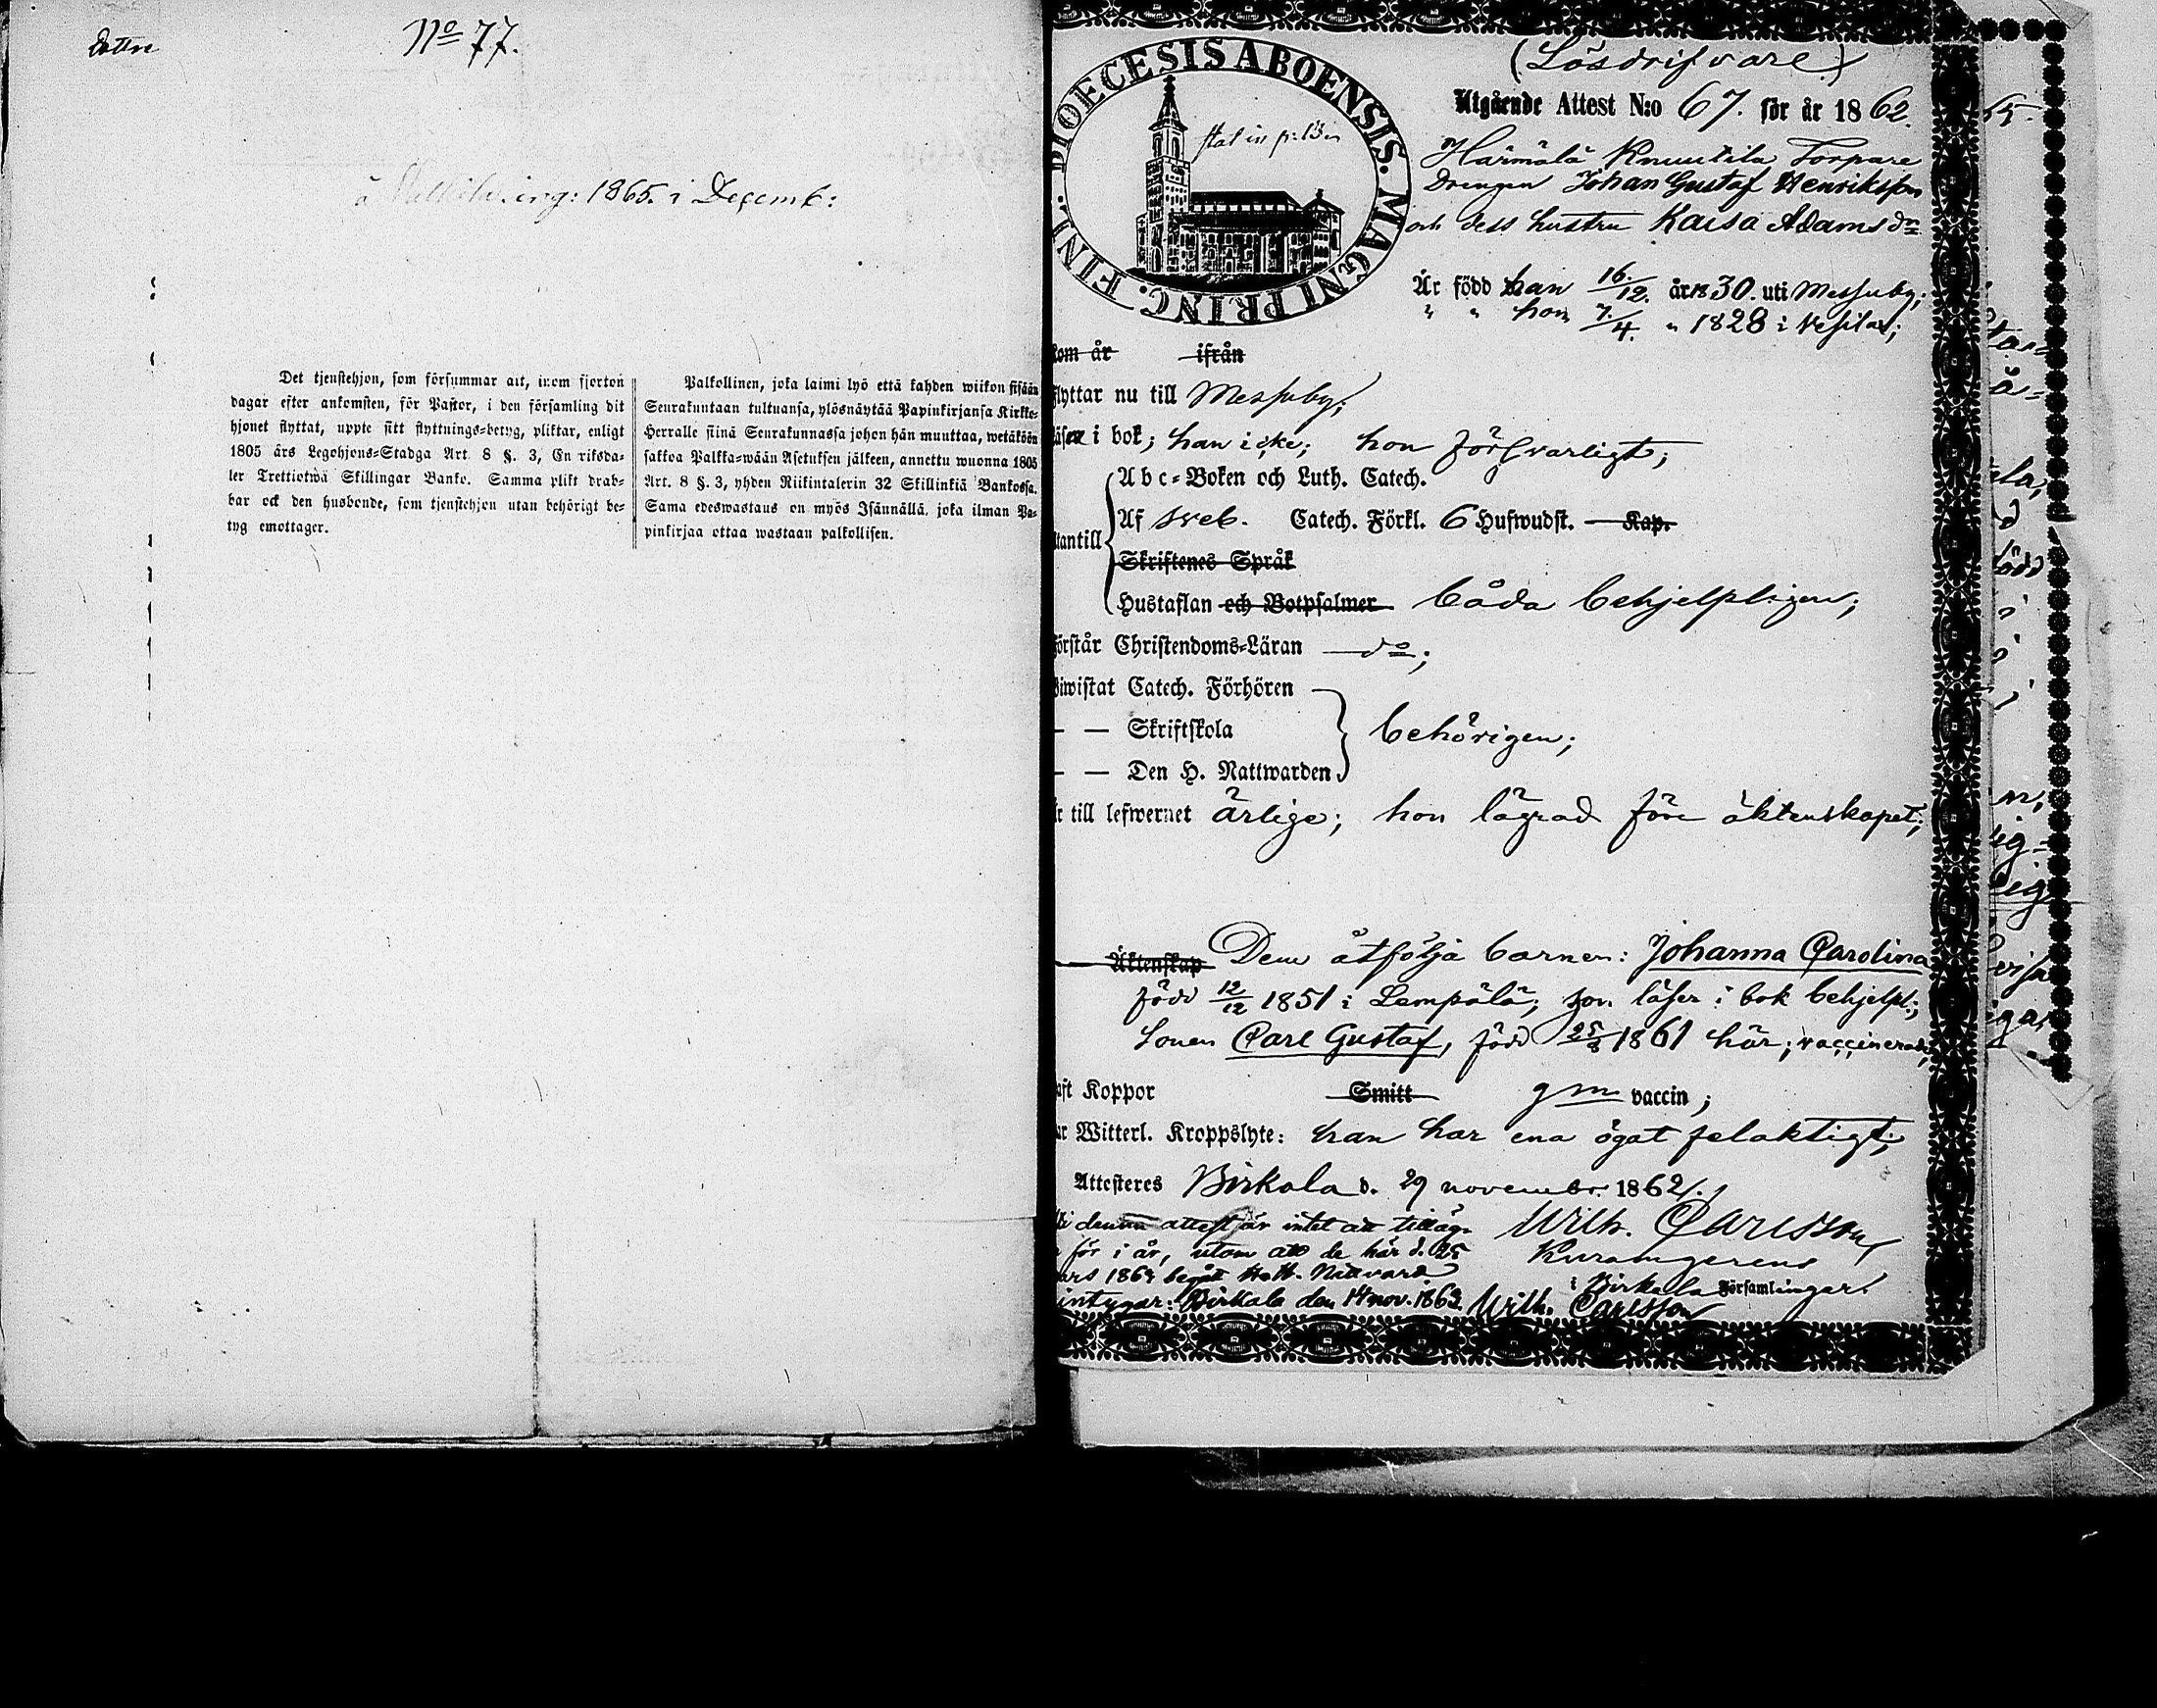 Dottre
No 77.
ing: 1865. i Decemb:
Det tjenstehjon, som försummar att, inom fjorton
dagar efter ankomsten, för Pastor, i den församling dit
hjonet flyttat, uppte sitt flyttnings-betyg, pliktar, enligt
1805 års Legohjons-Stadga Art. 8 §. 3, En riksda-
ler Trettiotwå Skillingar Banko. Samma plikt drab-
bar ock den husbonde, som tjenstehjon utan behörigt be-
tyg emottager.
Palkollinen, joka laimi lyö että kahden wiikon sisään
Seurakuntaan tultuansa, ylösnäytää Papinkirjansa Kirkko-
Herralle siinä Seurakunnassa johon hän muuttaa, wetäköön
sakkoa Palkka-wään Asetuksen jälkeen, annettu wuonna 1805
Art. 8 §. 3, yhden Riikintalerin 32 Skillinkiä Bankossa.
Sama edeswastaus on myös Isäunällä, joka ilman Pa-
pinkirjaa ottaa wastaan palkollisen.
DIOECESIS ABOENSIS. MAGNI PRINC. FINL.
(Lösdrifvare)
Utgående Attest N:o 67. för år 1862.
Härmälä Knuutila Torpare
Drengen Johan Gustaf Henriksson
och dess hustru Kaisa Adamsdr
Är född han 16/12. år 1830. uti Messuby;
" " hon 7/4. " 1828 i Vesilax;
kom år ifrån
flyttar nu till Messuby;
läser i bok; han icke; hon försvarligt;
Abc-Boken och Luth. Catech.
Af Sveb. Catech. Förkl. 6 Hufwudst. Kap.
utantill
Skriftenes Språk
Hustaflan och Botpsalmer båda behjelpligen;
Förstår Christendoms-Läran do;
Biwistat Catech. Förhören
— — Skriftskola behörigen;
— — Den H. Nattwarden
Är till lefwernet ärlige; hon lägrad före äktenskapet;
Äktenskap Dem åtfölja barnen: Johanna Carolina
född 12/12 1851 i Lempälä; som läser i bok behjelpl.;
Sonen Carl Gustaf, född 25/8 1861 här; vaccinerade
haft Koppor Smitt gm vaccin;
har Witterl. Kroppslyte: han har ena ögat felaktigt;
Attesteres Birkala d. 29 november 1862.
denna attest är intet att tillägga Wilh. Carlsson
för i år, utom att de här d. 25
mars 1863 begått H. H. Nattvard
i Birkala Församlingar.
intygar: Birkala den 14 nov. 1863. Wilh. Carlsson